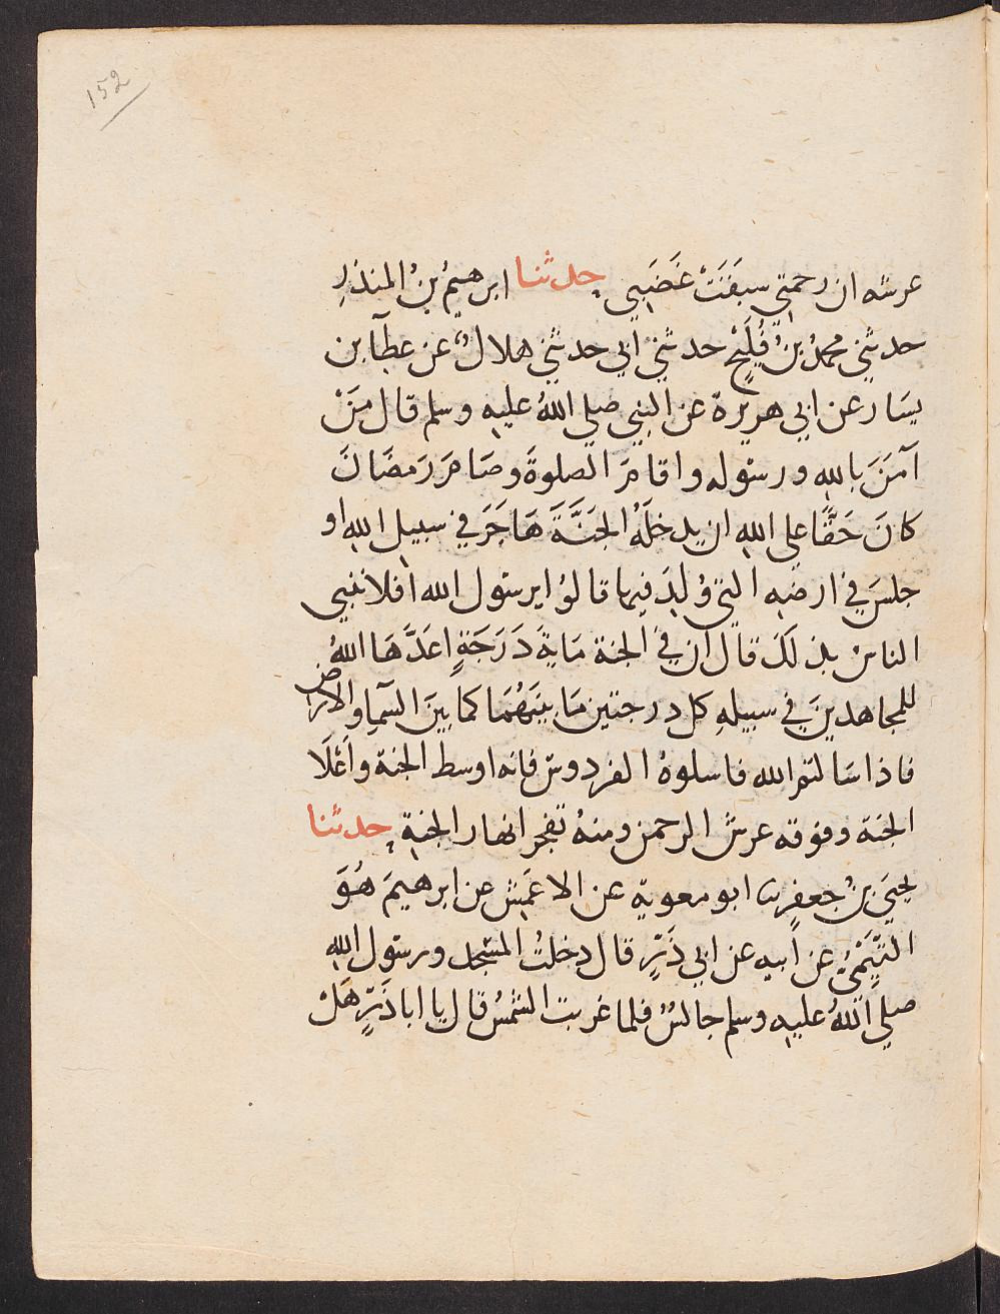 152
عرشه ان رحمتي سبقت غَضَبي حدثنا ابرهيمُ بنُ المنذرِ
حدثني محمدُ بنُ فُلَيْحٍ حدثني ابي حدثني هلالٌ عن عطآ بن
يسَار عن ابي هريرة عن النبي صلي اللهُ عليهِ وسلم قال مَنْ
آمَنَ باللهِ ورسوله واقامَ الصلوةَ وصَامَ رَمضَانَ
كانَ حَقًّا علي اللهِ ان يدخلَهُ الجَنَّةَ هَاجَرَ في سبيلِ اللهِ او
جلسَ في ارضهِ التي وُلِدَ فيها قالوُا يرسول الله افلا ننبي
الناسَ بذلكَ قال ان في الجنة مَايةَ دَرَجَةٍ اعَدَّهَا اللهُ
للمجاهدينَ في سبيلهِ كل درجتين مَا بينَهُمَا كما بينَ السَّمآِ والارض
فاذا سَالتم الله فاسلوهُ الفردوس فانه اوسط الجنة واَعْلَا
الجنة وفوقه عرشُ الرحمن ومنهُ تفجر انهار الجنةِ حدثنا
يحيَي بنُ جعفرٍ ثنا ابو معوية عن الاعمَشِ عن ابرهيمَ هُوَ
التَّيْمِيُّ عن اَبيه عن ابي ذَرٍّ قال دخلتُ المسْجد ورسول اللهِ
صلي اللهُ عليهِ وسلم جالسٌ فلما غربت الشمْسُ قال يا ابا ذَرٍّ هَلْ